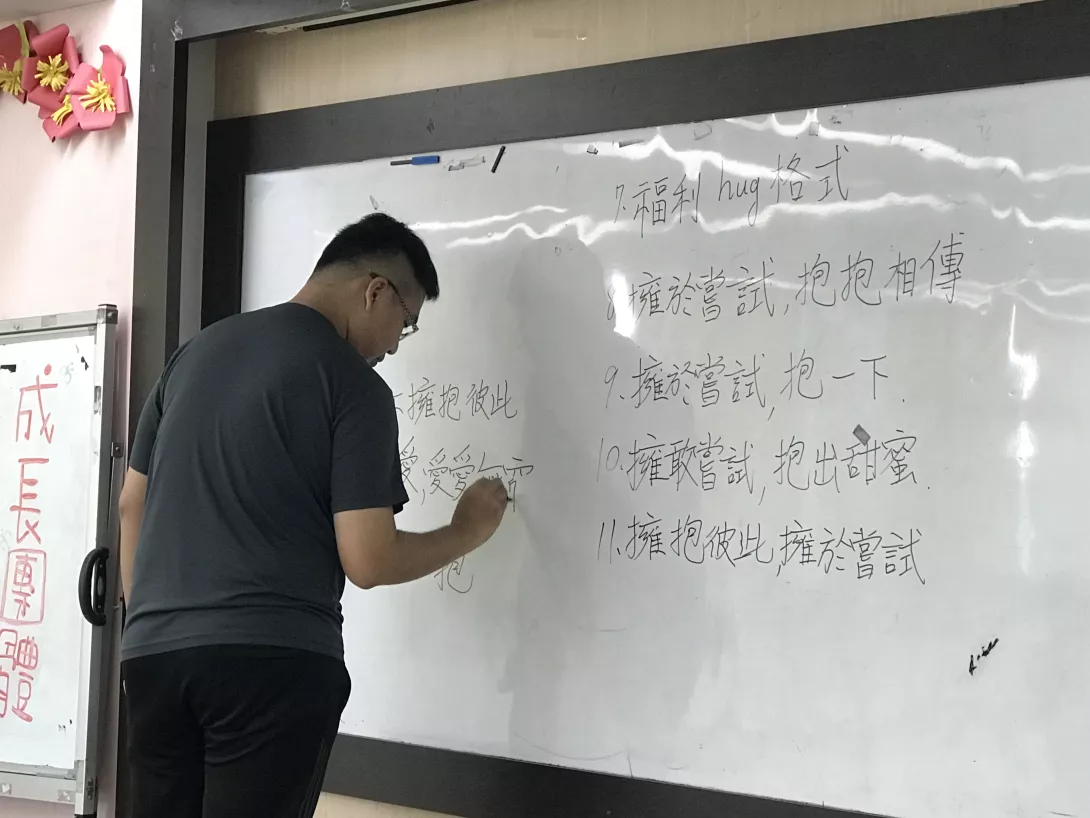 成長團體
擁抱彼此
愛,愛愛
抱
7.福利hug格式
8.擁於嘗試,抱抱相傳
9.擁於嘗試,抱一下.
10.擁敢嘗試,抱出甜蜜.
11.擁抱彼此,擁於嘗試